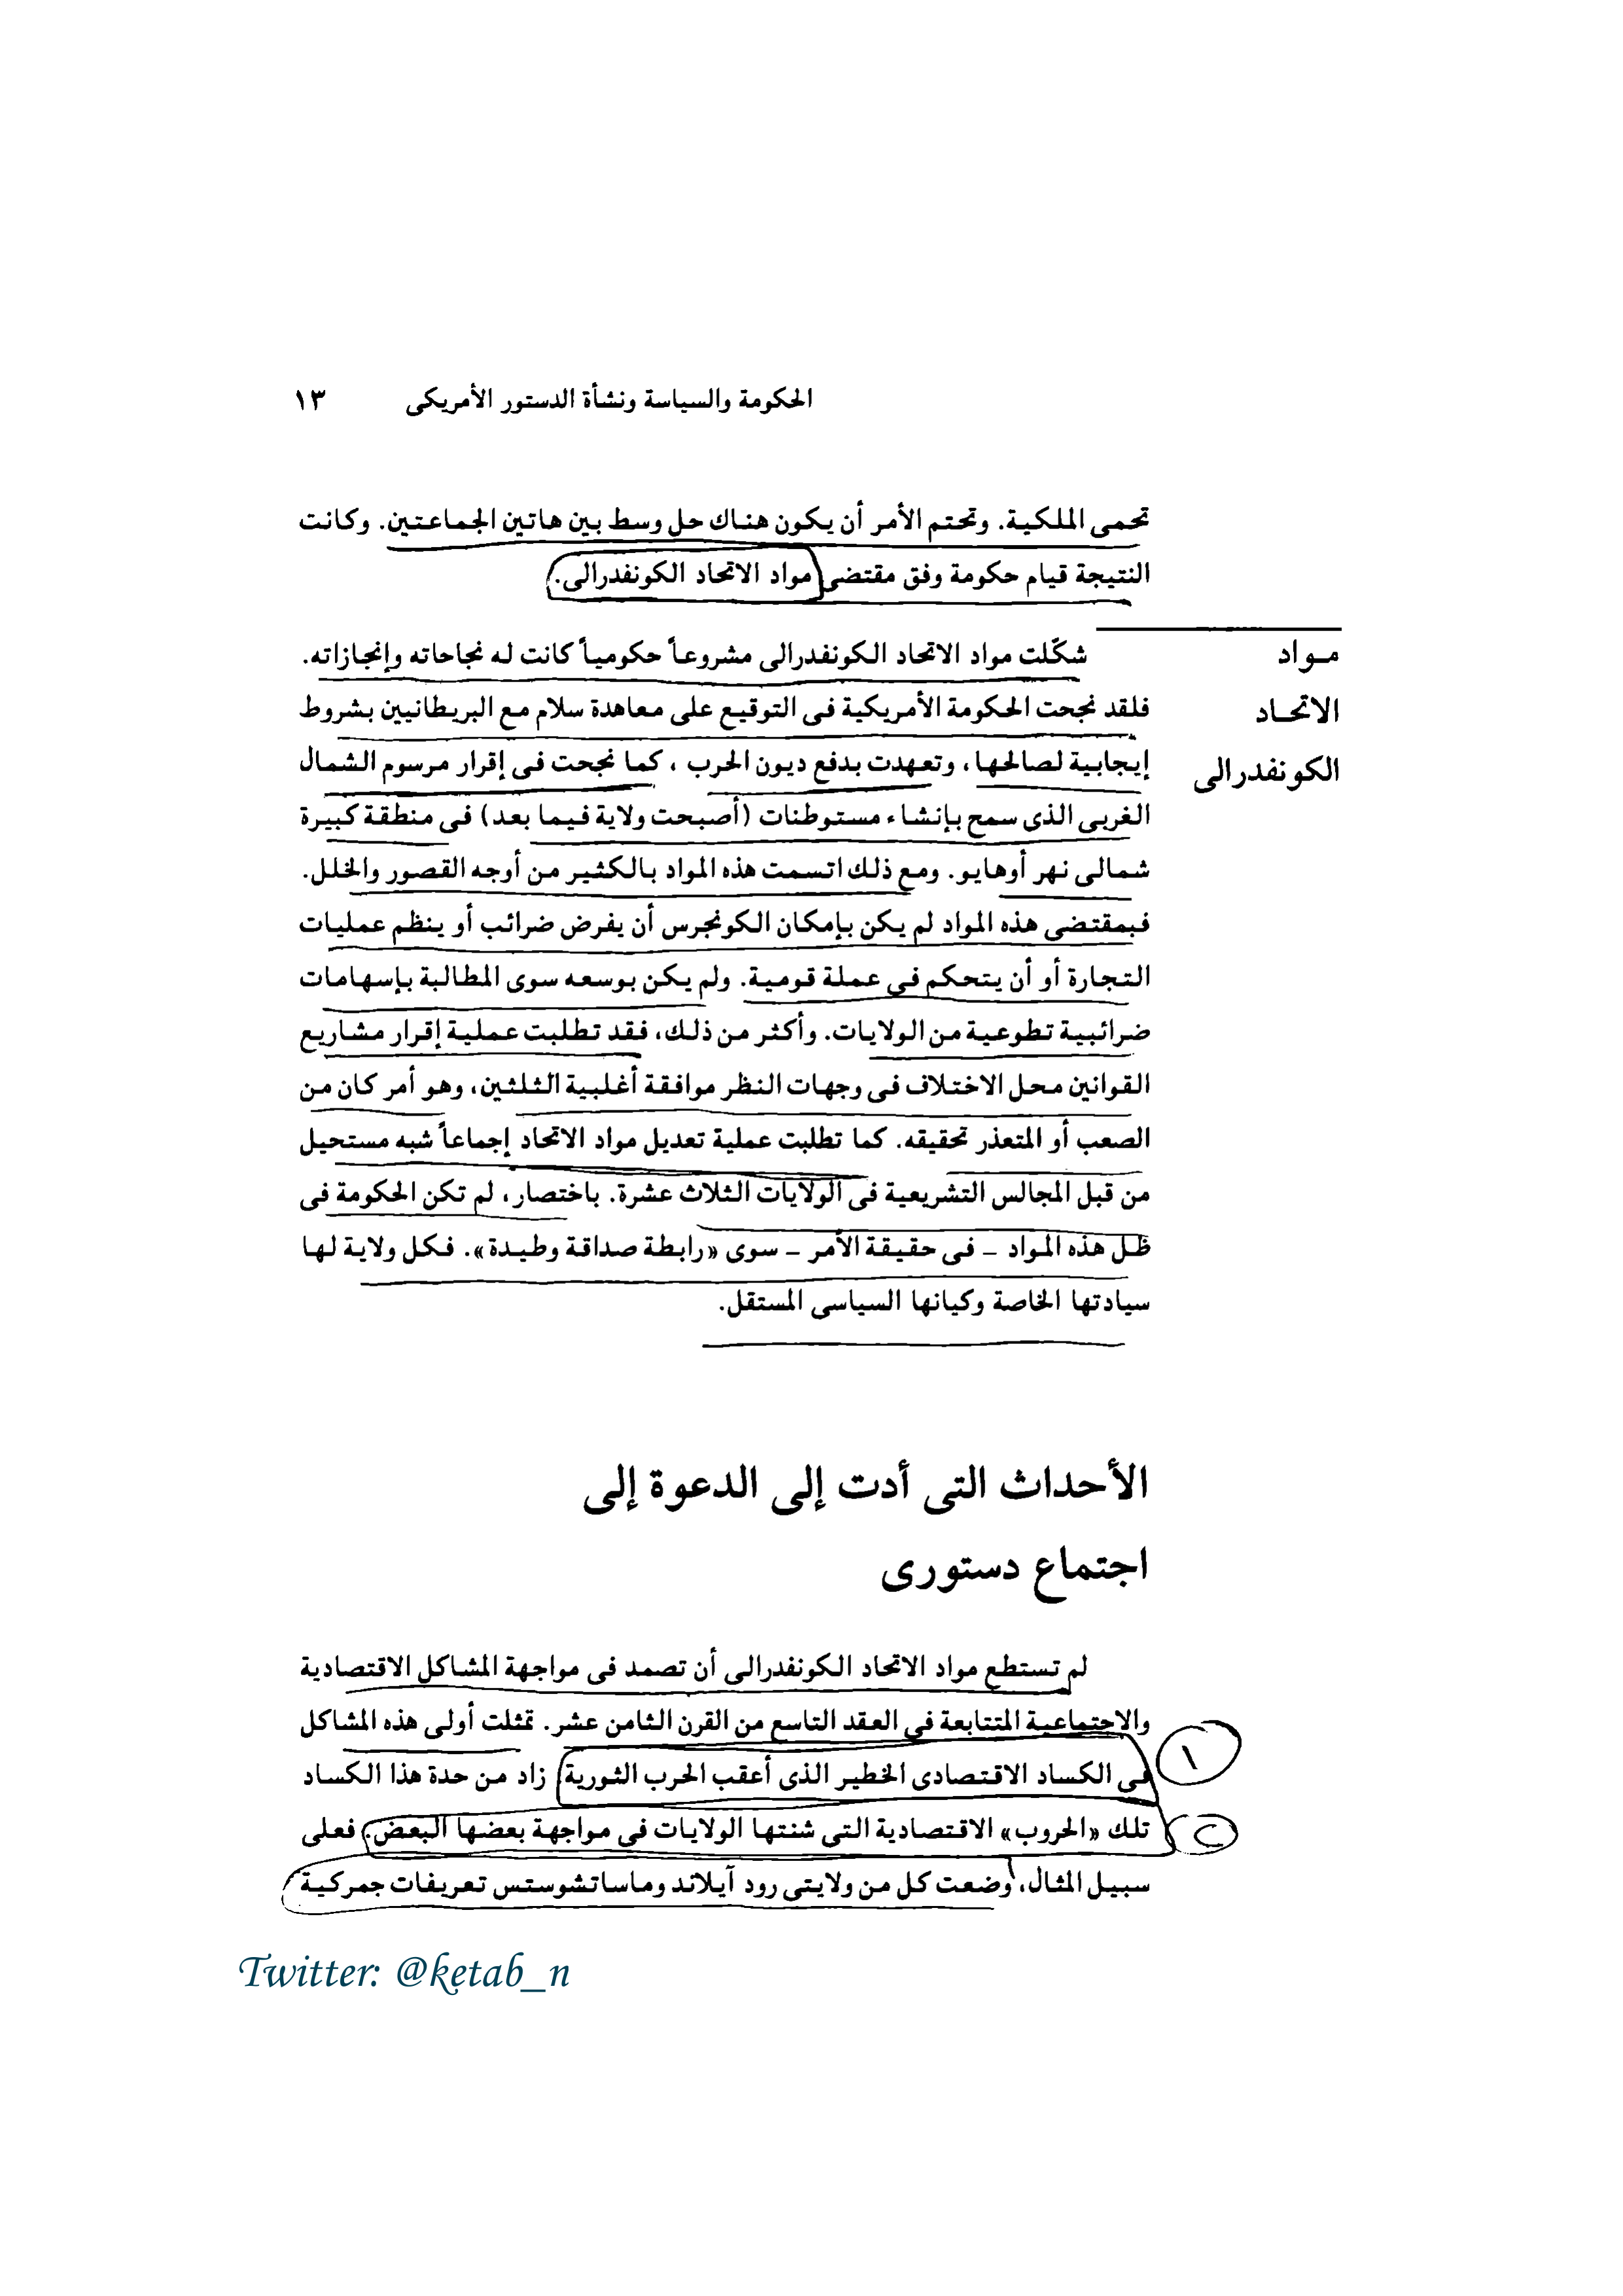 الحكومة والسياسة ونشأة الدستور الأمريكى ١٣
تحمى الملكية. وتحتم الأمر أن يكون هناك حل وسط بين هاتين الجماعتين. وكانت
النتيجة قيام حكومة وفق مقتضى مواد الاتحاد الكونفدرالى.
مواد
الاتحاد
الكونفدرالى
شكّلت مواد الاتحاد الكونفدرالى مشروعاً حكومياً كانت له نجاحاته وإنجازاته.
فلقد نجحت الحكومة الأمريكية فى التوقيع على معاهدة سلام مع البريطانيين بشروط
إيجابية لصالحها، وتعهدت بدفع ديون الحرب ، كما نجحت فى إقرار مرسوم الشمال
الغربى الذى سمح بإنشاء مستوطنات (أصبحت ولاية فيما بعد) فى منطقة كبيرة
شمالى نهر أوهايو. ومع ذلك اتسمت هذه المواد بالكثير من أوجه القصور والخلل.
فبمقتضى هذه المواد لم يكن بإمكان الكونجرس أن يفرض ضرائب أو ينظم عمليات
التجارة أو أن يتحكم فى عملة قومية. ولم يكن بوسعه سوى المطالبة بإسهامات
ضرائبية تطوعية من الولايات. وأكثر من ذلك، فقد تطلبت عملية إقرار مشاريع
القوانين محل الاختلاف فى وجهات النظر موافقة أغلبية الثلثين، وهو أمر كان من
الصعب أو المتعذر تحقيقه. كما تطلبت عملية تعديل مواد الاتحاد إجماعاً شبه مستحيل
من قبل المجالس التشريعية فى الولايات الثلاث عشرة. باختصار، لم تكن الحكومة فى
ظل هذه المواد – فى حقيقة الأمر – سوى «رابطة صداقة وطيدة». فكل ولاية لها
سيادتها الخاصة وكيانها السياسى المستقل.
الأحداث التى أدت إلى الدعوة إلى
اجتماع دستورى
لم تستطع مواد الاتحاد الكونفدرالى أن تصمد فى مواجهة المشاكل الاقتصادية
والاجتماعية المتتابعة فى العقد التاسع من القرن الثامن عشر. تمثلت أولى هذه المشاكل
فى الكساد الاقتصادى الخطير الذى أعقب الحرب الثورية زاد من حدة هذا الكساد
١
تلك «الحروب» الاقتصادية التى شنتها الولايات فى مواجهة بعضها البعض. فعلى
سبيل المثال، وضعت كل من ولايتى رود آيلاند وماساتشوستس تعريفات جمركية
Twitter: @ketab_n